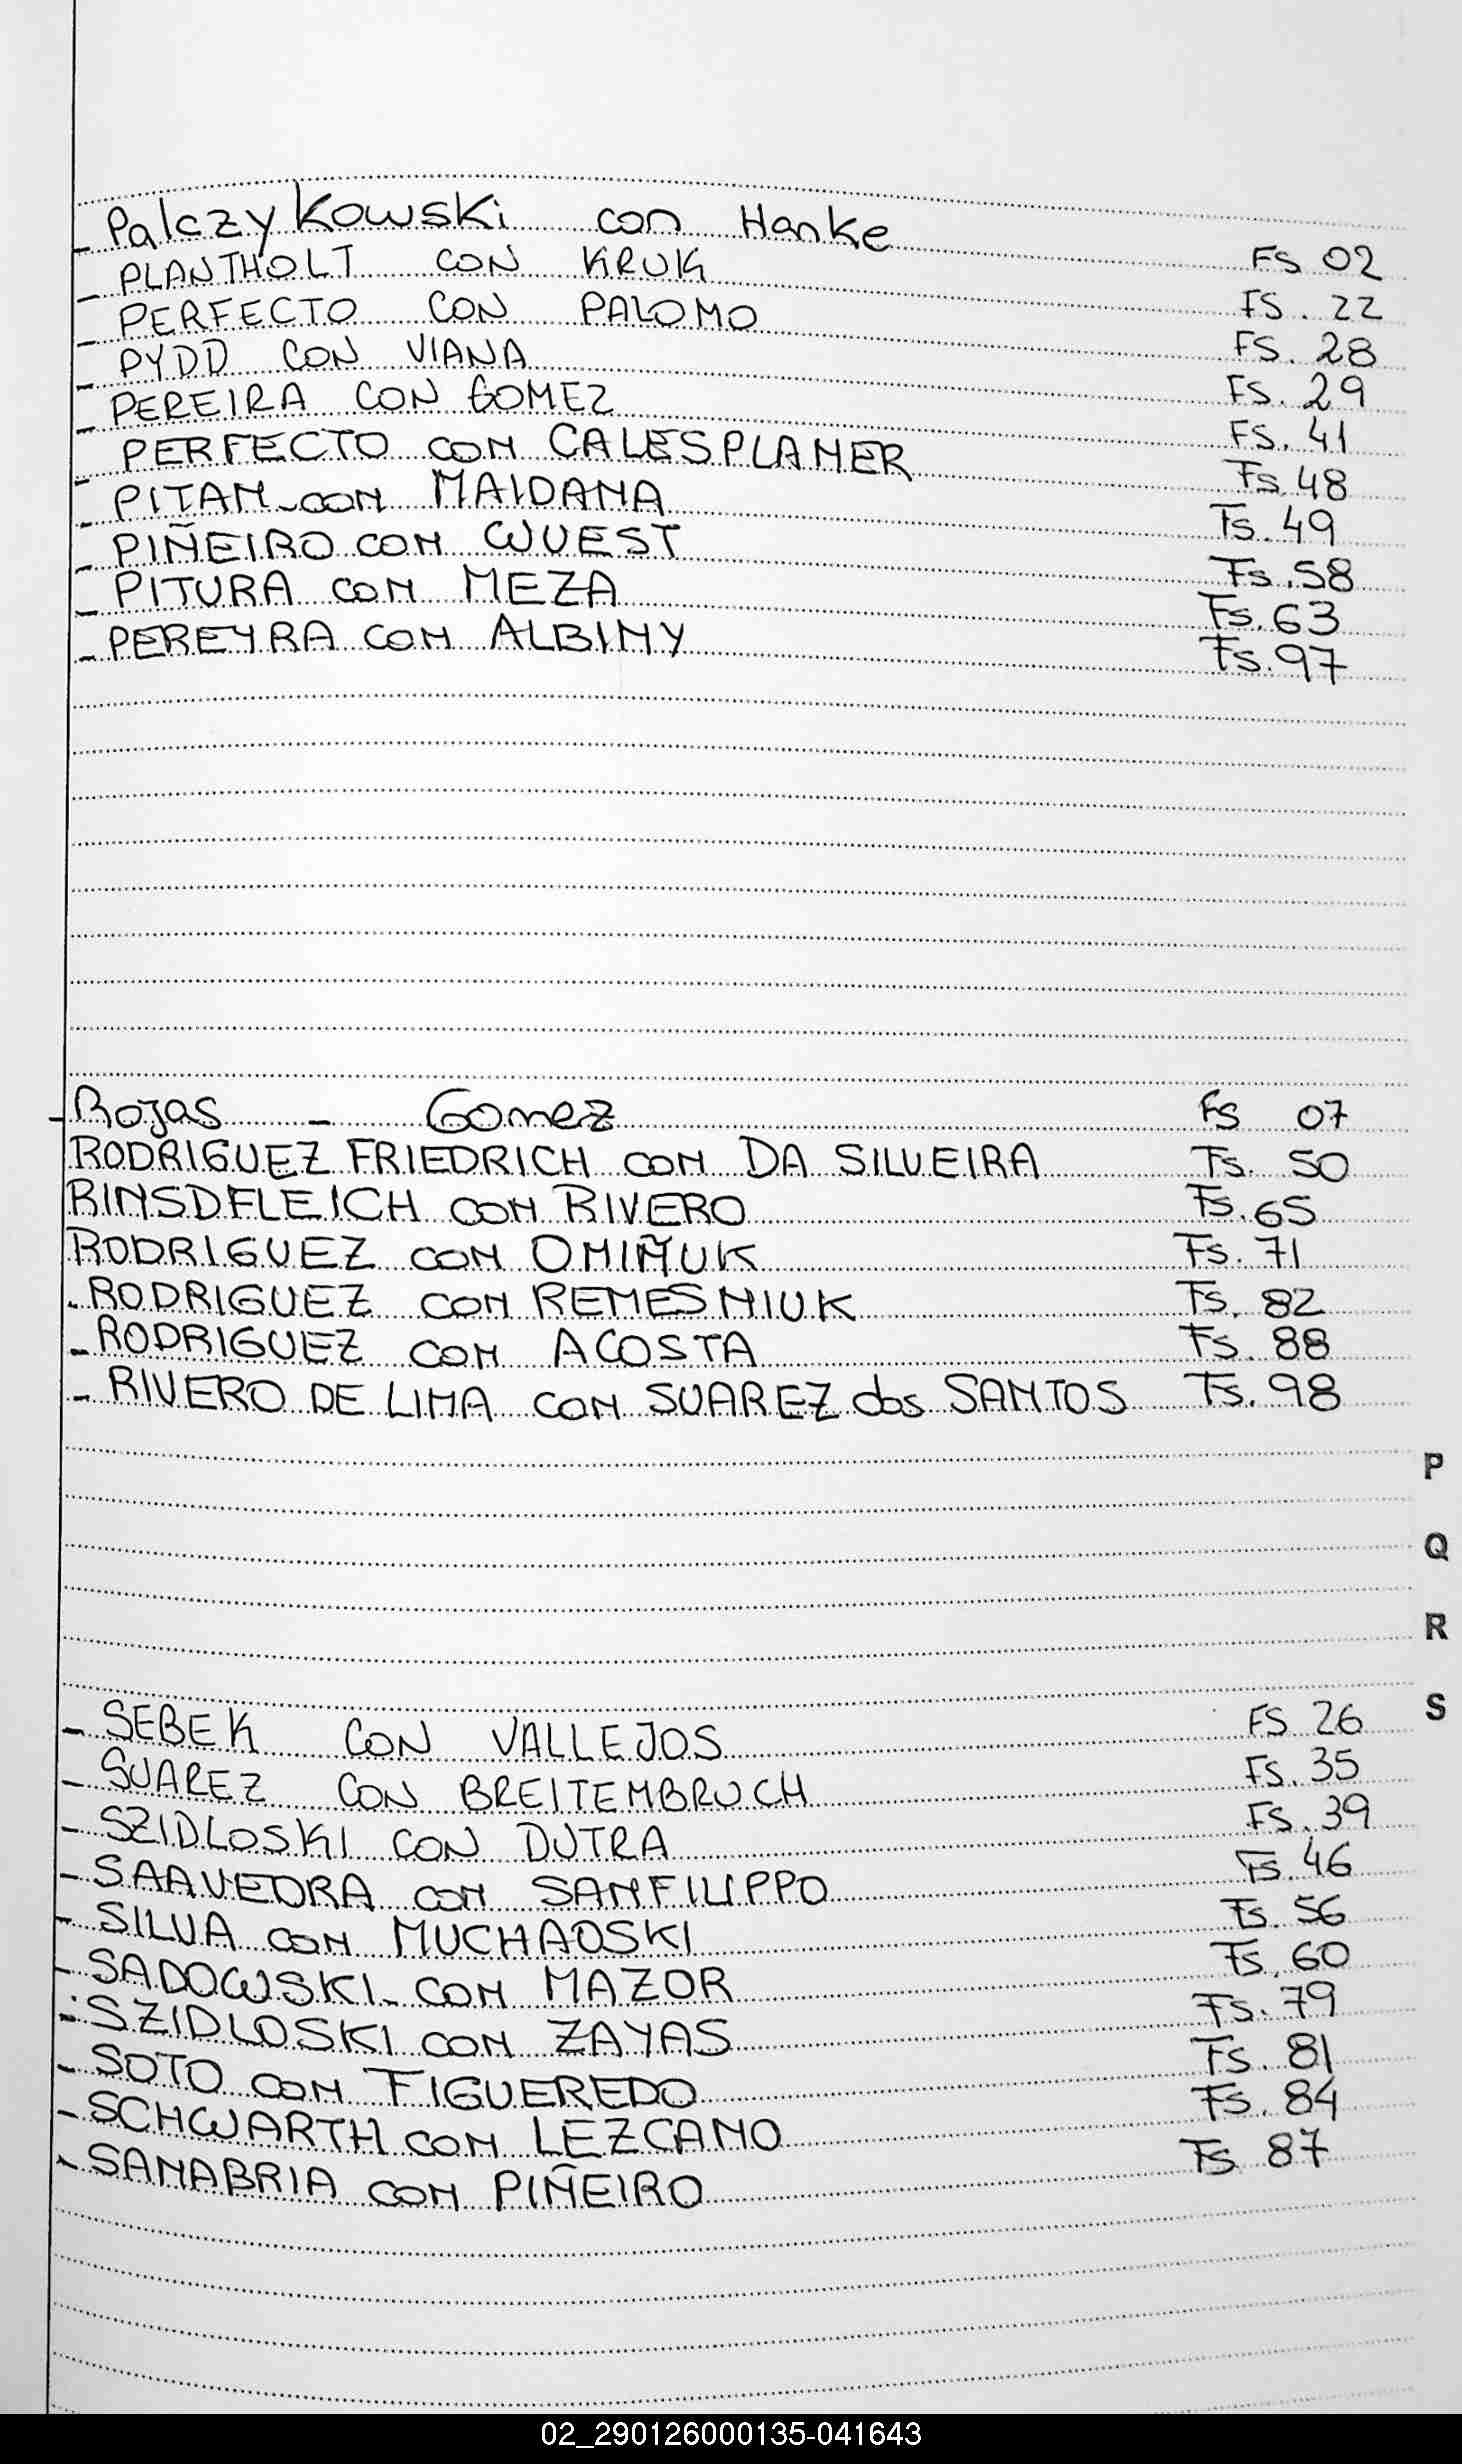 - Palczykowski con Hanke FS 02
- PLANTHOLT CON KRUK FS. 22
- PERFECTO CON PALOMO FS. 28
- PYDD CON VIANA FS. 29
- PEREIRA CON GOMEZ FS. 41
- PERFECTO CON CALESPLANER Fs. 48
- PITAN - CON MAIDANA Fs. 49
- PIÑEIRO CON WUEST Fs. 58
- PITURA CON MEZA Fs. 63
- PEREYRA CON ALBINY Fs. 97
- Rojas - Gomez FS 07
RODRIGUEZ FRIEDRICH CON DA SILVEIRA Fs. 50
RINSDFLEICH CON RIVERO Fs. 65
RODRIGUEZ CON OMIÑUK Fs. 71
- RODRIGUEZ CON REMESNIUK Fs. 82
- RODRIGUEZ CON ACOSTA Fs. 88
- RIVERO DE LIMA CON SUAREZ dos SANTOS Fs. 98
P
Q
R
S
- SEBEK CON VALLEJOS FS 26
- SUAREZ CON BREITEMBRUCH FS. 35
- SZIDLOSKI CON DUTRA FS. 39
- SAAVEDRA CON SANFILIPPO Fs. 46
- SILVA CON MUCHAOSKI Fs. 56
- SADOWSKI - CON MAZOR Fs. 60
- SZIDLOSKI CON ZAYAS Fs. 79
- SOTO CON FIGUEREDO Fs. 81
- SCHWARTH CON LEZCANO Fs. 84
- SANABRIA CON PIÑEIRO Fs 87
02_290126000135-041643